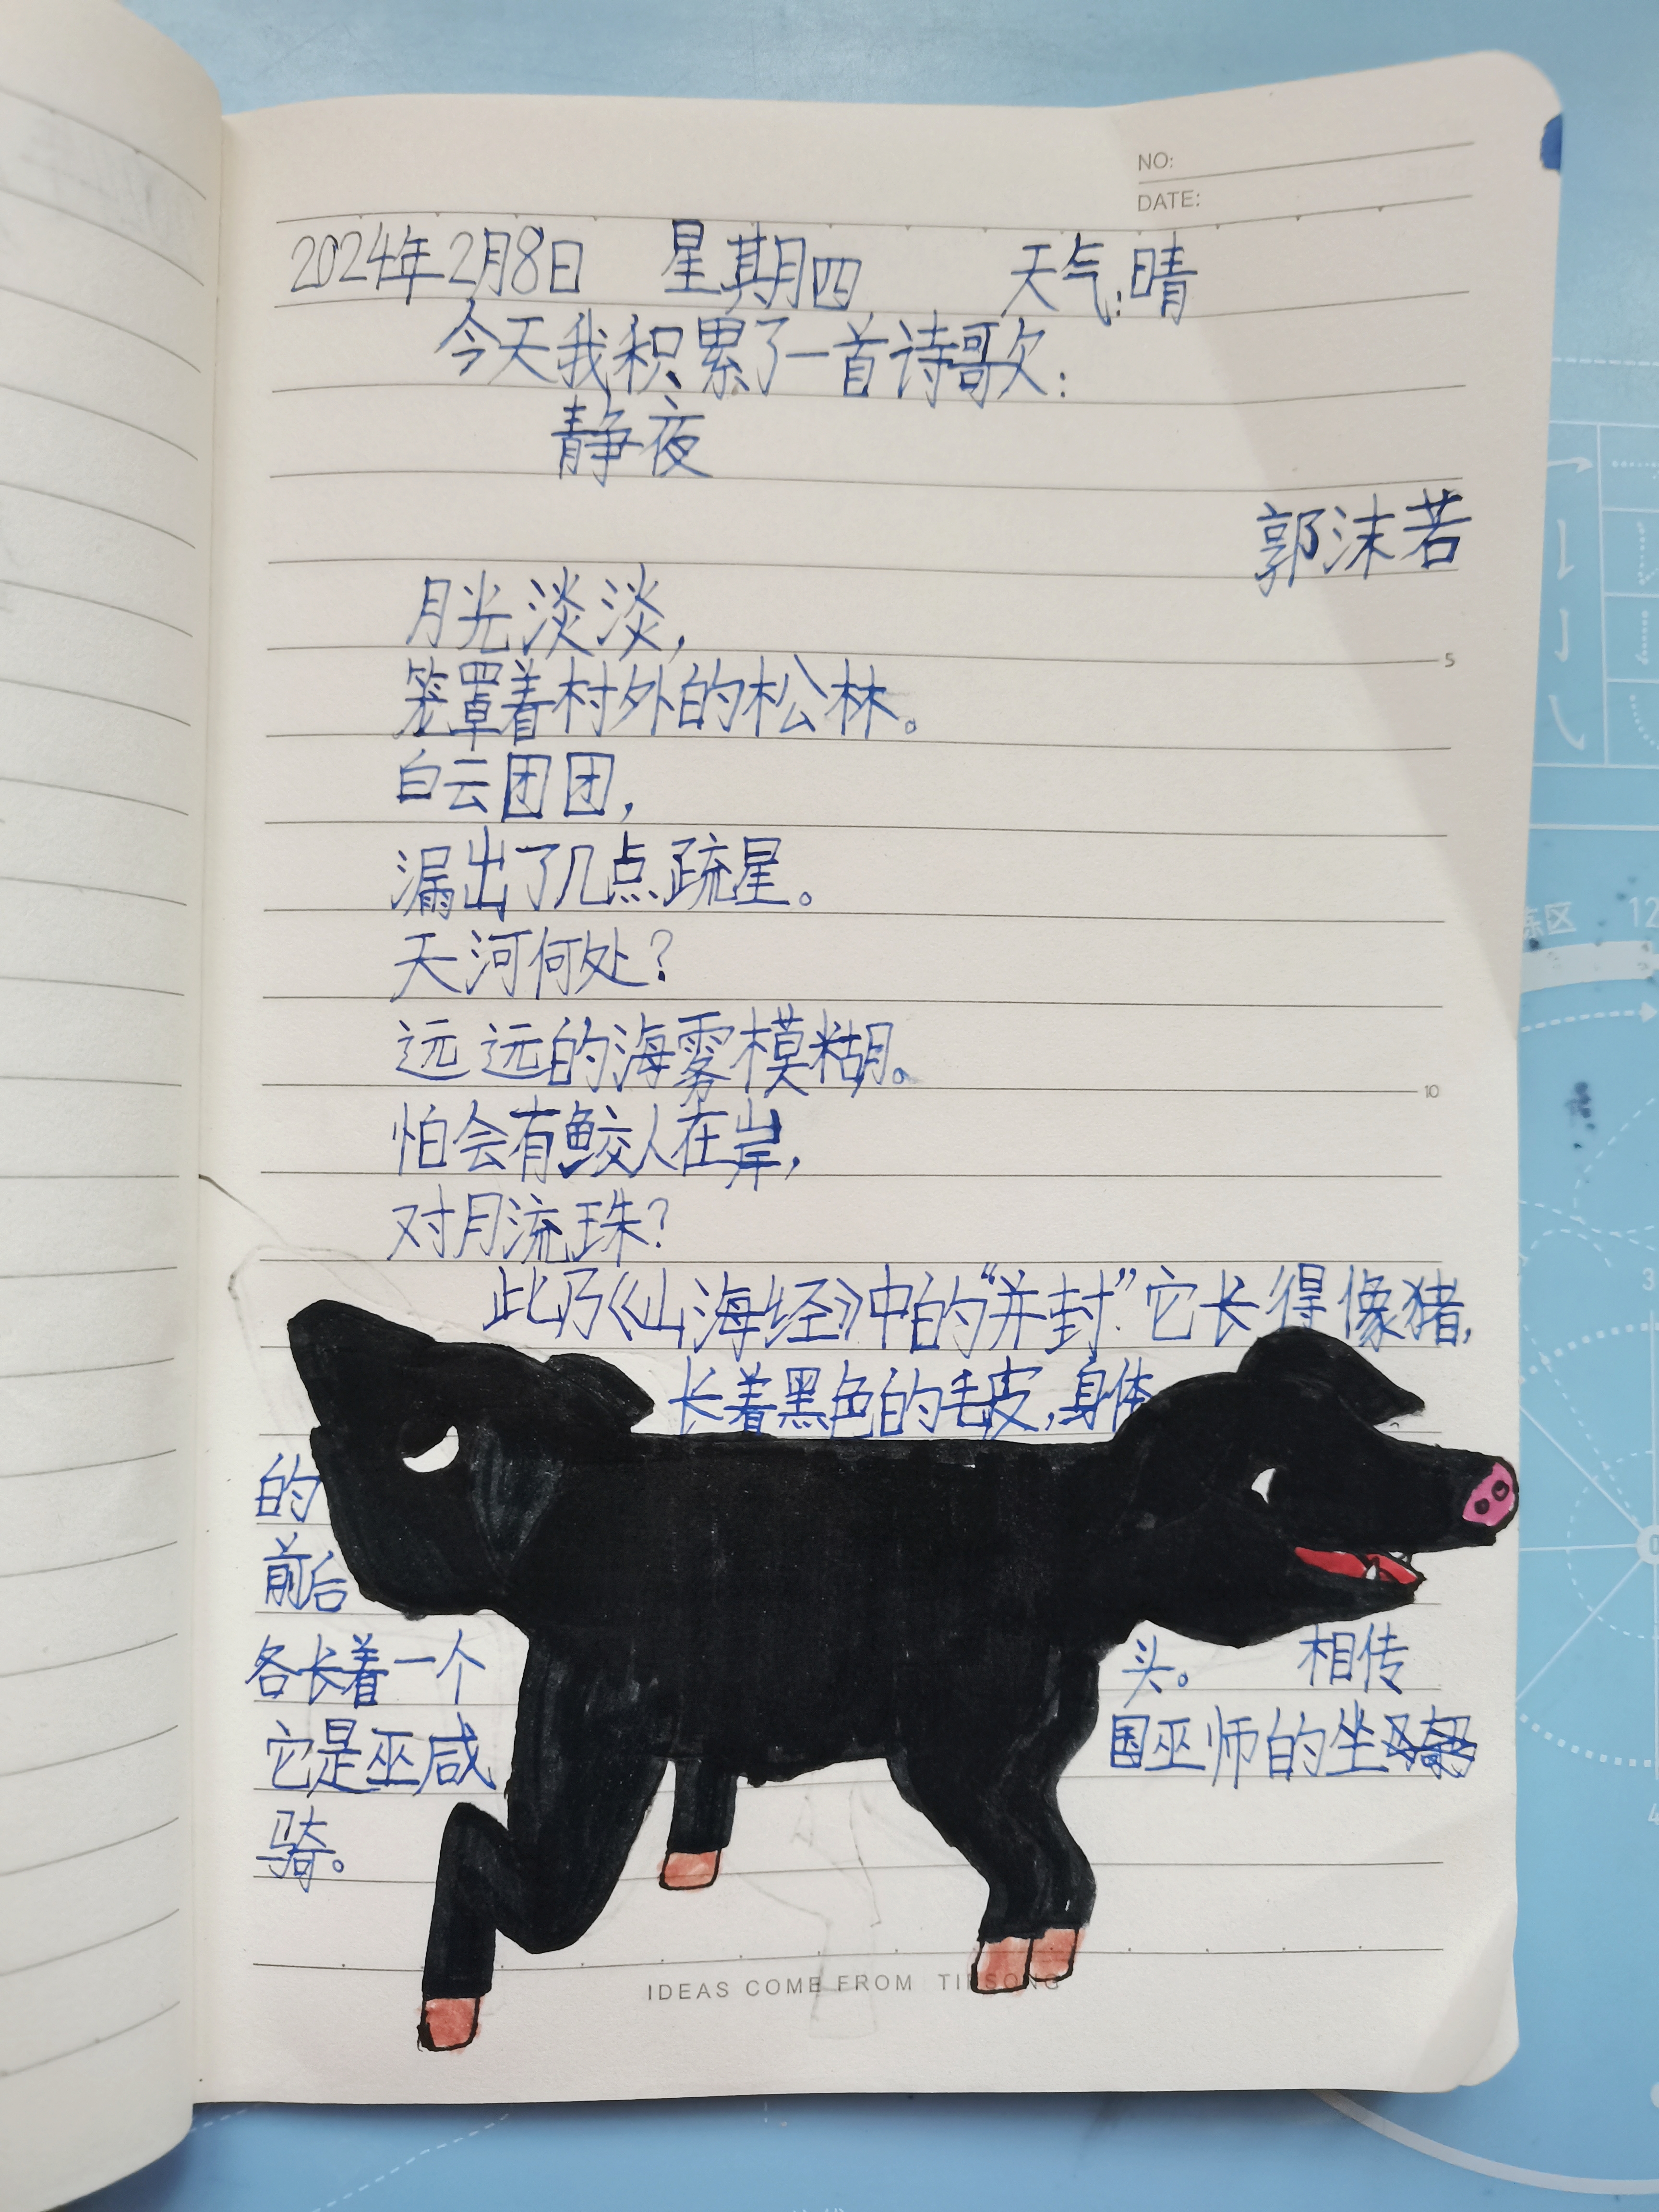 NO:
DATE:
2024年2月8日 星期四 天气:晴
今天我积累了一首诗歌:
静夜
郭沫若
月光淡淡,
笼罩着村外的松林。
白云团团,
漏出了几点疏星。
天河何处?
远远的海雾模糊。
怕会有鲛人在岸,
对月流珠?
此乃《山海经》中的“并封”.它长得像猪,
长着黑色的毛皮,身体
的
前后
各长着一个头。 相传
它是巫咸国巫师的坐
骑。
IDEAS COME FROM TINSONG
5
10